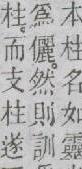 本柱名如靈
爲儷。然則訓
柱。而支柱遂